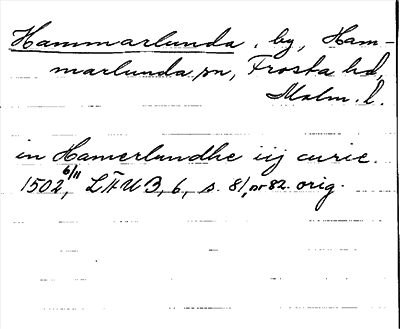 Hammarlunda, by, Ham-
marlunda sn, Frosta hd,
Malm. l.
in Hamerlundhe iij curie.
1502 6/11, LÄUB, 6, s. 81, nr 82. orig.